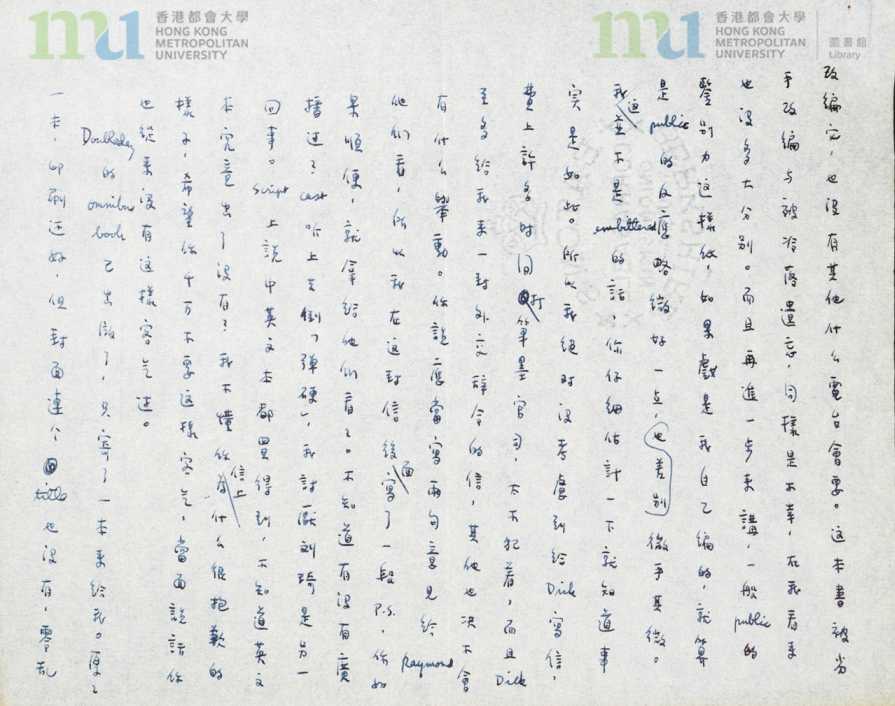 香港都會大學
HONG KONG
METROPOLITAN
UNIVERSITY
香港都會大學
HONG KONG
METROPOLITAN
UNIVERSITY
圖書館
Library
改編完，也沒有其他什么電台會要。這本書被劣
手改編与被冷落遺忘，同樣是不幸，在我看來
也沒多大分別。而且再進一步來講，一般public的
鑒別力這樣低，如果戲是我自己編的，就算
是public的反應略微好一点，也差別微乎其微。
我這並不是embittered的話，你仔細估計一下就知道事
實是如此。所以我絕对沒考慮到給Dick寫信，
費上許多时间打筆墨官司，太不犯着，而且Dick
至多給我來一封外交辭令的信，其他也決不會
有什么舉動。你說應當寫兩句意見給Raymond
他们看，所以我在這封信後面寫了一段P.S.，你如
果順便，就拿給他们看看。不知道有沒有廣
播过？cast听上去倒「彈硬」，我討厭刘琦是另一
回事。script上說中英文本都買得到，不知道英文
本究竟出了沒有？我不懂你信上為什么很抱歉的
樣子，希望你千万不要這樣客气，當面說話你
也從來沒有這樣客气过。
Doubleday的omnibus book已出版了，只寄了一本來給我。厚厚
一本，印刷还好，但封面連个title也沒有，零乱